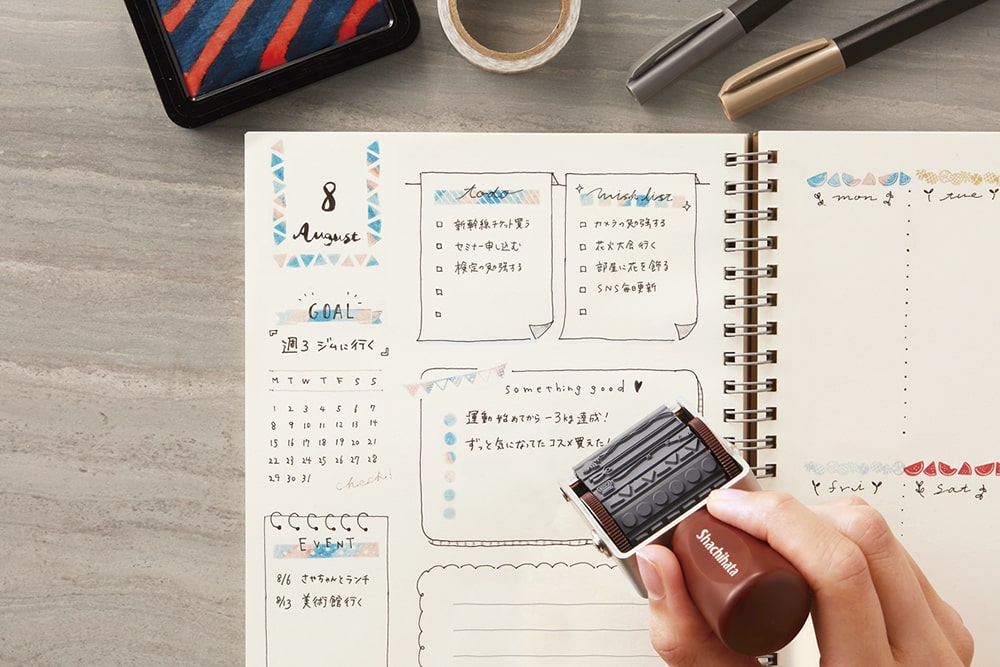 8
August
GOAL
『週3 ジムに行く』
M T W T F S S
1 2 3 4 5 6 7
8 9 10 11 12 13 14
15 16 17 18 19 20 21
22 23 24 25 26 27 28
29 30 31
check!
EVENT
8/6 さやちゃんとランチ
8/13 美術館行く
todo
新幹線チケット買う
セミナー申し込む
検定の勉強する
wish list
カメラの勉強する
花火大会行く
部屋に花を飾る
SNS毎日更新
something good
運動始めてから-3kg達成!
ずっと気になってたコスメ買えた!
Shachihata
mon
tue
fri
sat